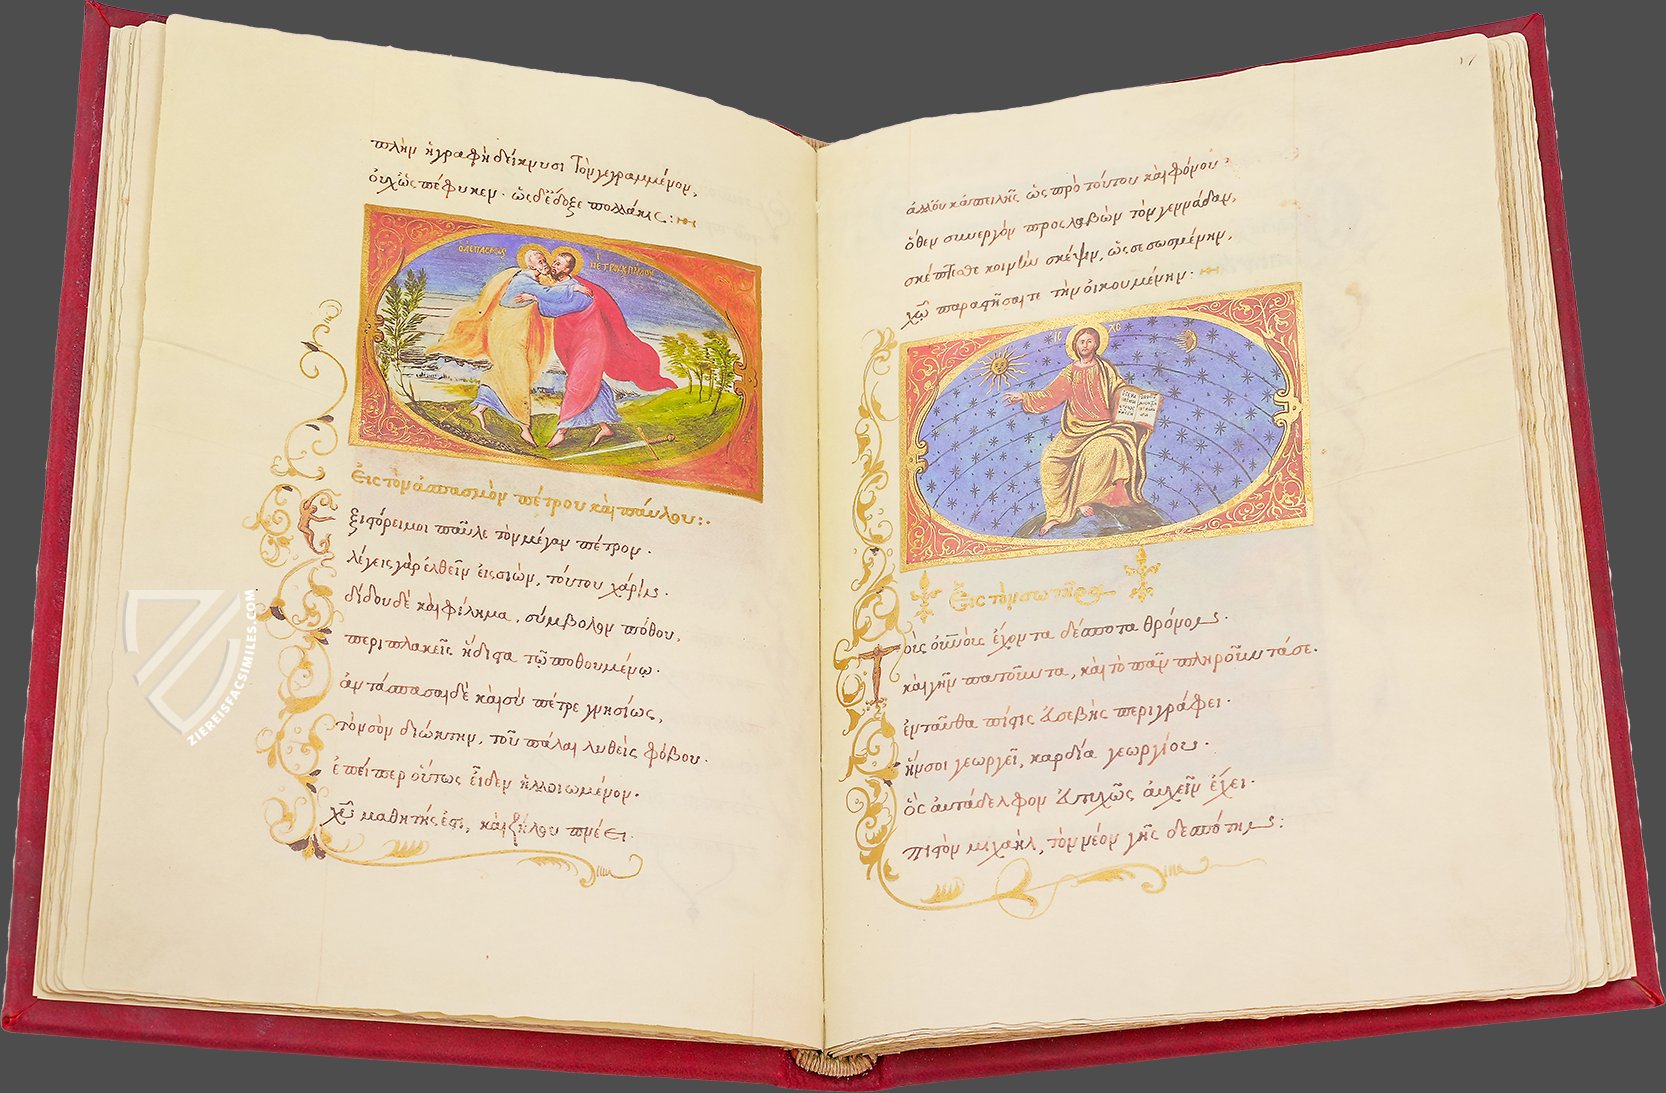 πλὴν ἡ γραφὴ δείκνυσι τὸν γεγραμμένον,
οὐχ ὡς πέφυκεν· ὡς δ' ἔδοξε πολλάκις:
Ὁ ΑΣΠΑΣΜΟΣ
ΠΕΤΡΟΥ Κ ΠΑΥΛΟΥ
Εἰς τὸν ἀσπασμὸν πέτρου καὶ παύλου:·
Ἐξιφόρει μοι παῦλε τὸν μέγαν πέτρον·
λέγεις γὰρ ἐλθεῖν εἰς σιὼν, τούτου χάριν·
δίδου δὲ καὶ φίλημα, σύμβολον πόθου,
περιπλακεὶς ἥδιστα τῷ ποθουμένῳ·
ἀντάσπασαι δὲ καὶ σὺ πέτρε γνησίως,
τὸν σὸν διώκτην, τοῦ πάλαι λυθεὶς φόβου·
ἐπείπερ οὕτως εἶδεν ἠλλοιωμένον·
χῦ μαθητής ἐστι, καὶ ζήλου πνέει·
17
ἄλλου κἀπειλῆς ὡς πρὸ τούτου καὶ φόνου·
ὅθεν συνεργὸν προσλαβὼν τὸν γεννάδαν,
σκέπτεσθε κοινὴν σκέψιν, ὡς σεσωσμένην,
χῶ παραστήσαιτε τὴν οἰκουμένην·
ΙϹ ΧϹ
Εἰς τὸν σωτῆρα
Τὸν οὐνοὺς ἔχοντα δέσποτα θρόνον·
καὶ γῆν πατοῦντα, καὶ τὸ πᾶν πληροῦντά σε·
ἐνταῦθα πίστις εὐσεβὴς περιγράφει·
ἥν σοι γεωργεῖ, καρδία γεωργίου·
ὃς αὐτάδελφον εὐτυχῶς αὐχεῖν ἔχει·
πιστὸν μιχαὴλ, τὸν νέον γῆς δεσπότην:
ZIEREISFACSIMILES.COM